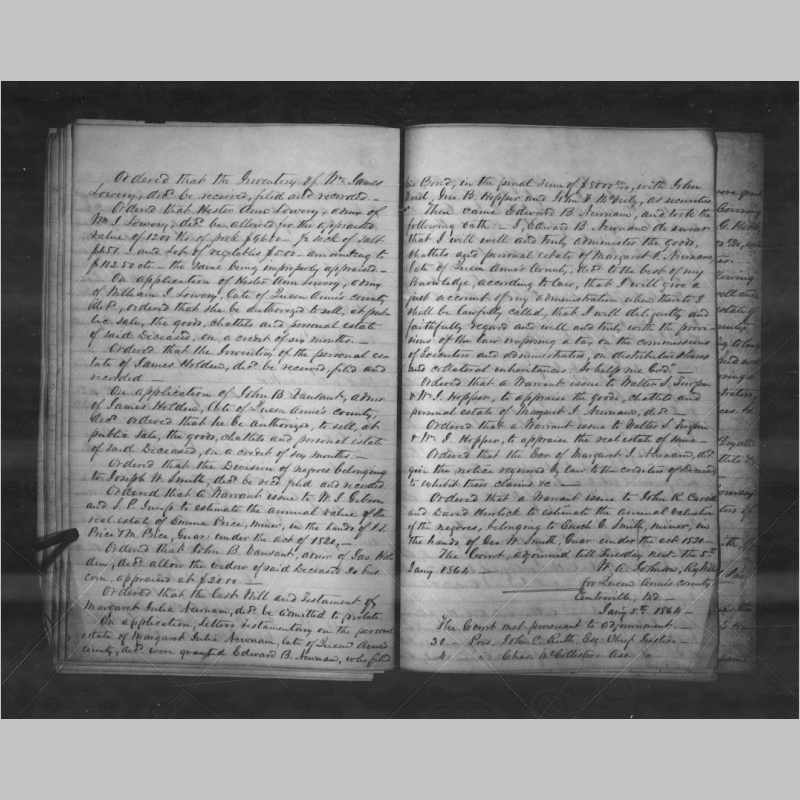 Ordered that the Inventory of Wm. James
Lowery, decd. be received, filed and recorded —
Ordered that Hester Ann Lowery, admx of
Wm J. Lowery, decd. be allowed, for the appraised
value of 1200 lbs of pork $96.00 — sack of salt
and lot of vegetables $5.00 — amounting to
$112.50 cts — the same being improperly appraised —
On application of Hester Ann Lowery, admx
of William J. Lowery, late of Queen Anne's county
decd., ordered that she be authorized to sell, at pub-
lic sale, the goods, chattels and personal estate
of said Deceased, on a credit of six months —
Ordered that the Inventory of the personal es-
tate of James Holden, decd. be received, filed and
recorded —
On application of John B. Vansant, admr
of James Holden, late of Queen Anne's county,
decd. ordered that he be authorized, to sell, at
public sale, the goods, chattels and personal estate
of said Deceased, on a credit of six months —
Ordered that the Division of negroes belonging
to Joseph W. Smith, decd. be recd. filed and recorded
Ordered that a Warrant issue to W. J. Gibson
and S. P. Jump to estimate the annual value of the
real estate of Emma Price, minor, in the hands of
Price T. M. Price, Guar. under the act of 1820 —
Ordered that John B. Vansant, admr. of Jas. Hol-
den, decd. allow the widow of said Deceased 20 bus
corn, appraised at $20.00 —
Ordered that the Last Will and Testament of
Margaret Julia Newnam, decd. be admitted to probate
On application, letters testamentary on the personal
estate of Margaret Julia Newnam, late of Queen Anne's
county, decd. were granted Edward B. Newnam, who filed
his Bond, in the penal sum of $5000, with John
B. Hopper and John F. McFeely, as securities
Then came Edward B. Newnam, and took the
following oath — I, Edward B. Newnam do swear
that I will well and truly administer the goods,
chattels and personal estate of Margaret J. Newnam,
late of Queen Anne's county, decd. to the best of my
knowledge, according to law, that I will give a
just account of my administration when thereto I
shall be lawfully called, that I will diligently and
faithfully regard and well and truly with the provi-
sions of the law imposing a tax on the commissions
of Executors and administrators, on distributive shares
and collateral inheritances. So help me God —
Ordered that a Warrant issue to Walter S. Turpin
& Wm J. Hopper, to appraise the goods, chattels and
personal estate of Margaret J. Newnam, decd. —
Ordered that a Warrant issue to Walter S. Turpin
& Wm. J. Hopper, to appraise the real estate of same —
Ordered that the Exr of Margaret J. Newnam, decd.
give the notice required by law to the creditors of deceased
to exhibit their claims &c —
Ordered that a Warrant issue to John R.
and David to estimate the annual valuation
of the negroes, belonging to C. Smith, minor, in
the hands of Geo. W. Smith, Guar. under the act 1820 —
The Court, adjourned till Tuesday next the 5th
Jany 1864 —
W. A. Johnson, Register
for Queen Anne's county
Centreville, Md —
Jany 5th 1864 —
The Court met pursuant to adjournment —
Pres. John C. Ruth, Esq. Chief Justice —
Chas. McCollister